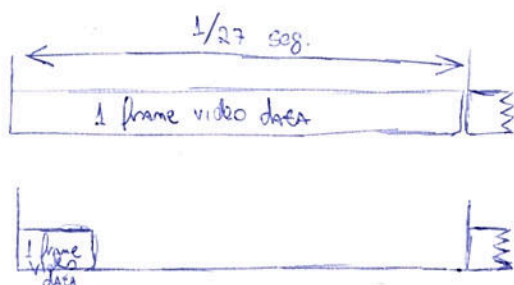 1/27 seg.
1 frame video data
1 frame
video
data